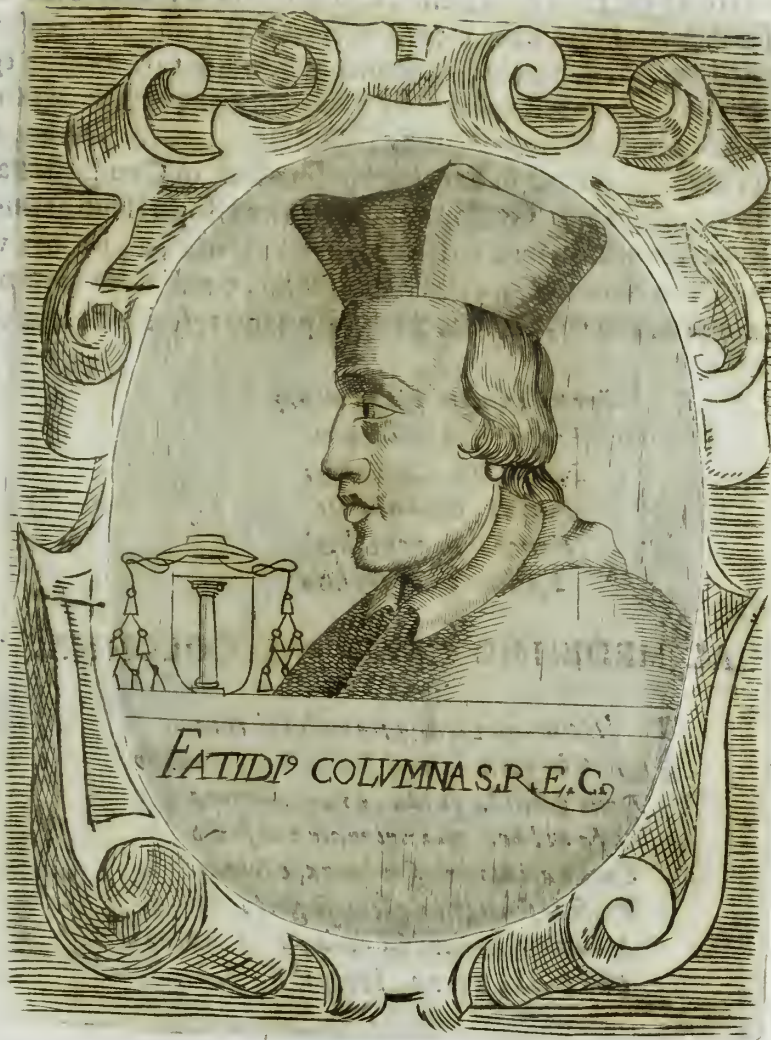 FATIDIꝰ COLVMNA S.R.E.C.